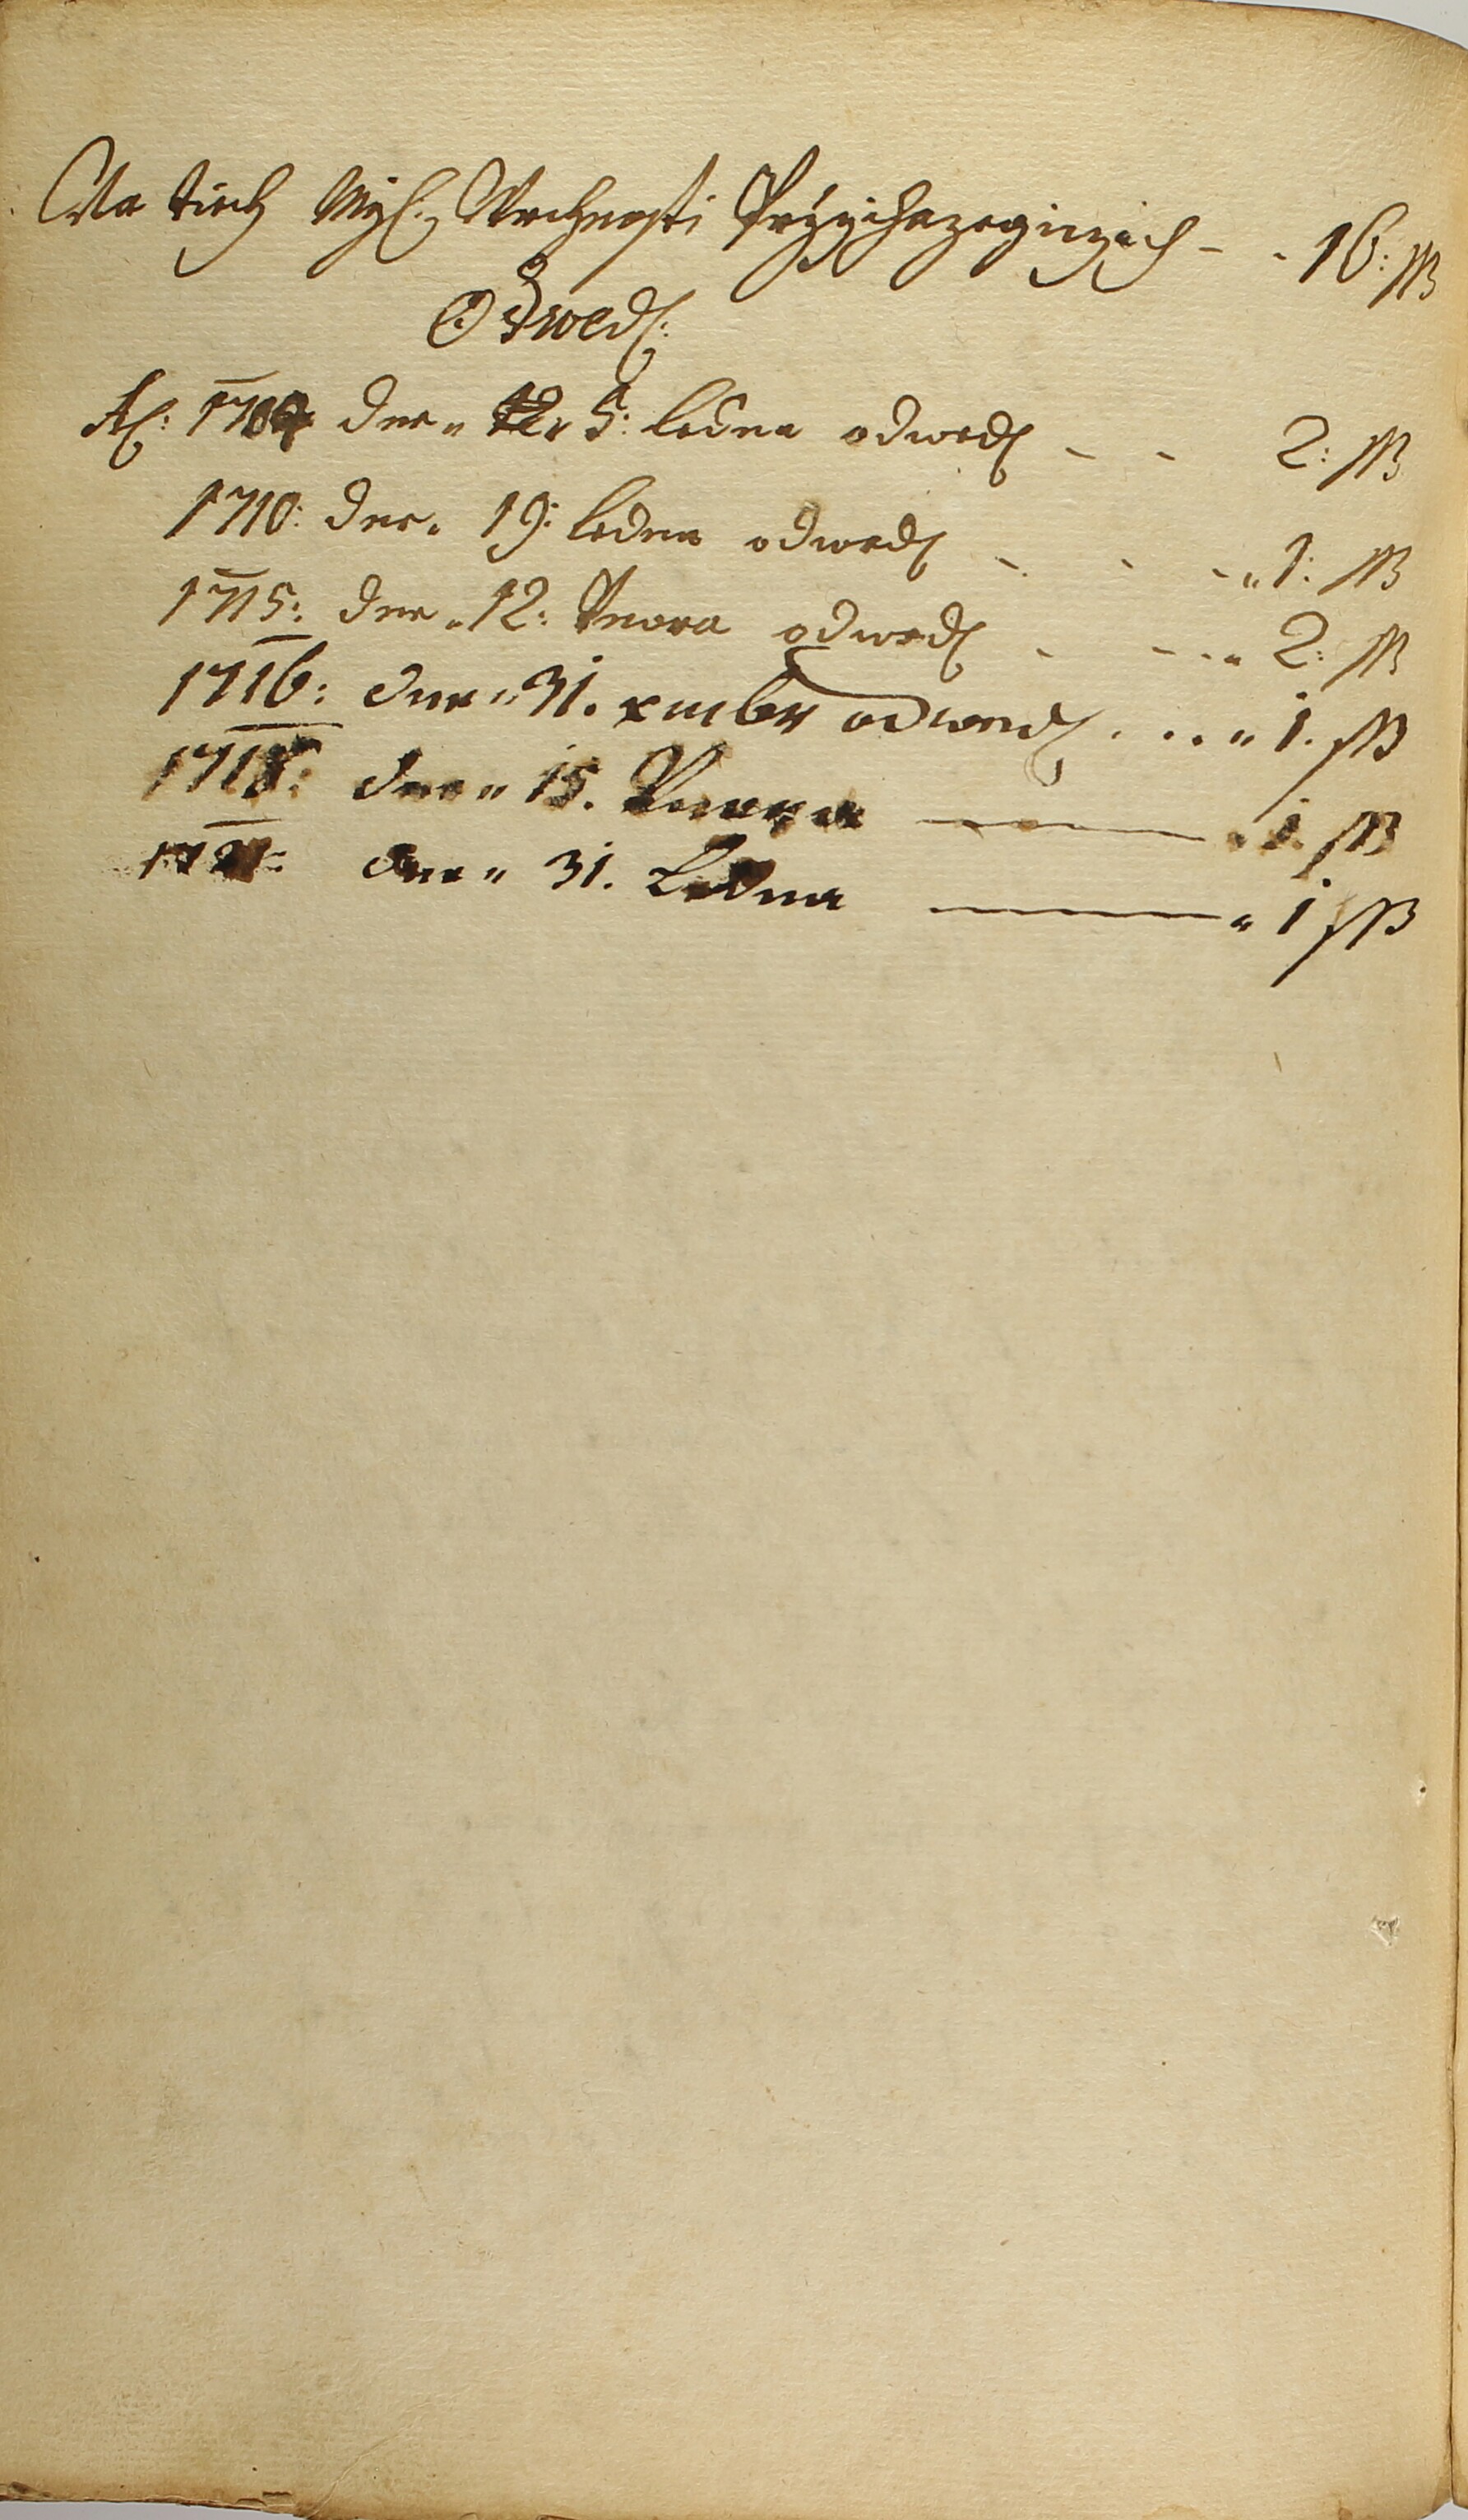 Na tiech Mj: Wrchnosti Przychazegiczich - - 16: ß
Odwedl:
Al: 1704 dne 5: ledna odwedl - - 2: ß
1710: dne 19: ledna odwedl - - - 1: ß
1715: dne 12: Unora odwedl - - - 2: ß
1716: dne 31. xmber odwedl . . . 1. ß
1718: dne 15. Unora — 1. ß
dne 31. Ledna — 1 ß